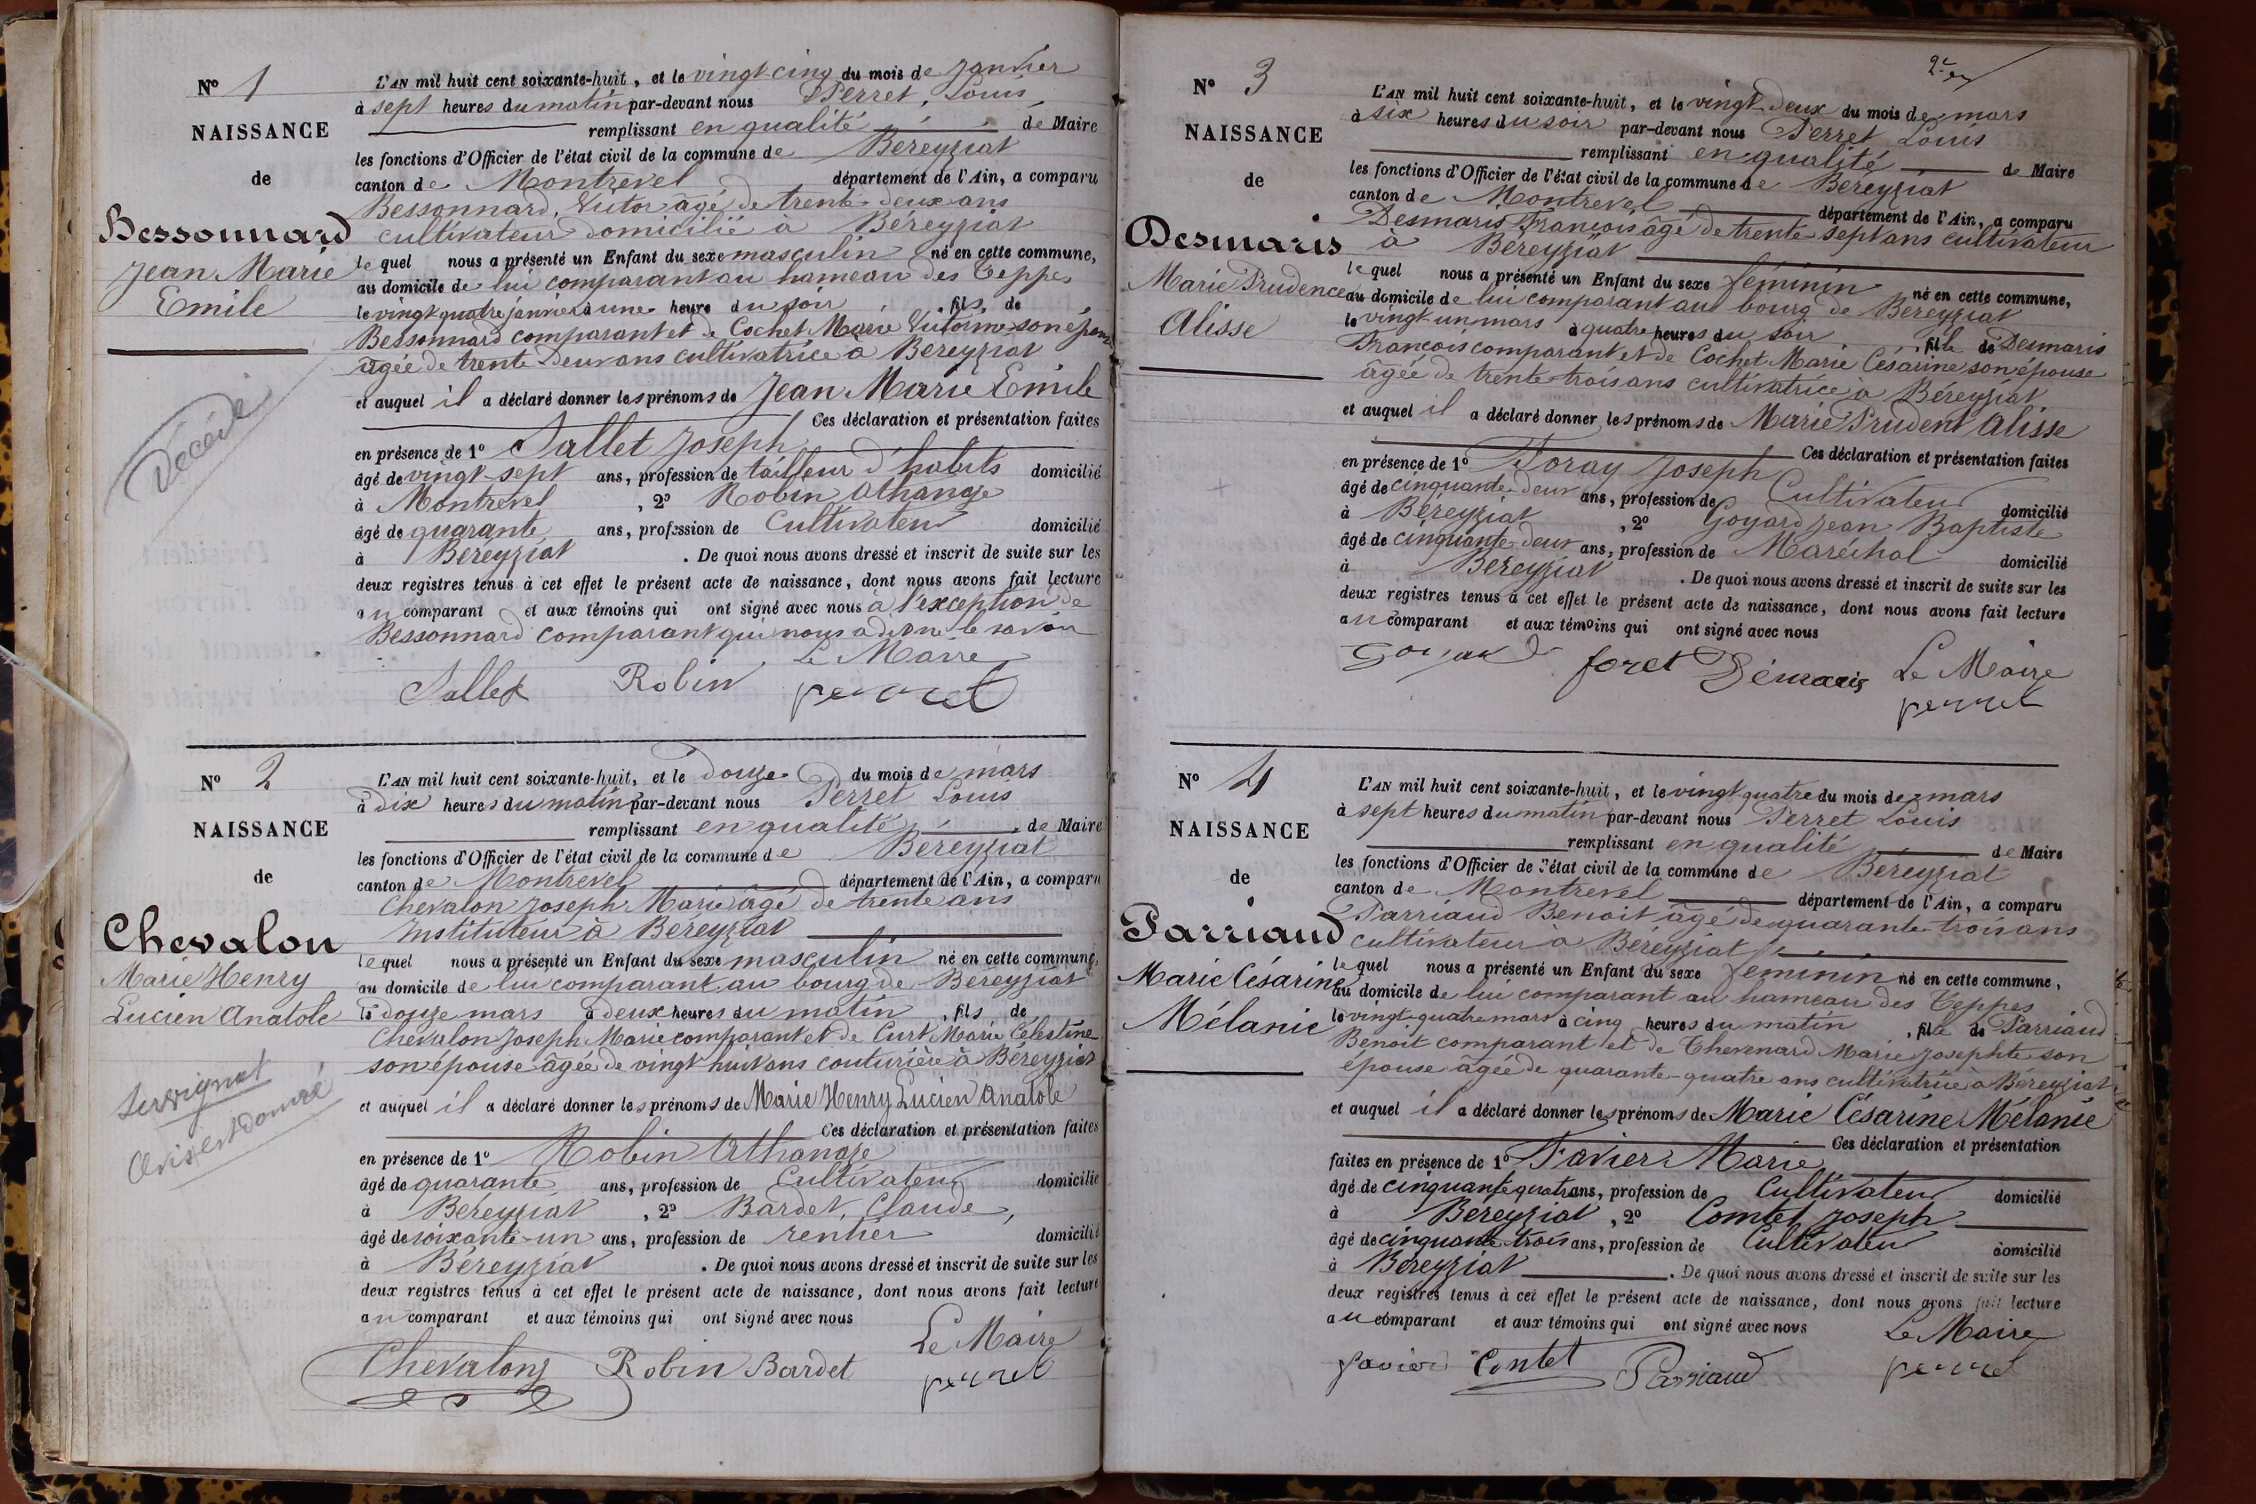 N° 1
NAISSANCE
de
Bessonnard
Jean Marie
Emile
Décédé
L'AN mil huit cent soixante-huit, et le vingt-cinq du mois de janvier
à sept heures du matin par-devant nous Perret, Louis,
remplissant en qualité de Maire
les fonctions d'Officier de l'état civil de la commune de Béreyziat
canton de Montrevel département de l'Ain, a comparu
Bessonnard, Victor agé de trente-deux ans
cultivateur domicilié à Béreyziat
lequel nous a présenté un Enfant du sexe masculin né en cette commune,
au domicile de lui comparant au hameau des Teppes
le vingt quatre janvier à une heure du soir, fils de
Bessonnard comparant et de Cochet Marie Victorine son épouse
agée de trente deux ans cultivatrice à Béreyziat
et auquel il a déclaré donner les prénoms de Jean Marie Emile
Ces déclaration et présentation faites
en présence de 1° Sallet Joseph
âgé de vingt-sept ans, profession de tailleur d'habits domicilié
à Montrevel, 2° Robin Athanaze
âgé de quarante ans, profession de Cultivateur domicilié
à Béreyziat. De quoi nous avons dressé et inscrit de suite sur les
deux registres tenus à cet effet le présent acte de naissance, dont nous avons fait lecture
au comparant et aux témoins qui ont signé avec nous à l'exception de
Bessonnard comparant qui nous a dit ne le savoir
Le Maire
Sallet Robin perret
N° 2
NAISSANCE
de
Chevalon
Marie Henry
Lucien Anatole
Servignat
Avis est donné
L'AN mil huit cent soixante-huit, et le douze du mois de mars
à dix heures du matin par-devant nous Perret Louis
remplissant en qualité de Maire
les fonctions d'Officier de l'état civil de la commune de Béreyziat
canton de Montrevel département de l'Ain, a comparu
Chevalon Joseph Marie âgé de trente ans
instituteur à Béreyziat
lequel nous a présenté un Enfant du sexe masculin né en cette commune,
au domicile de lui comparant au bourg de Béreyziat
le douze mars à deux heures du matin, fils de
Chevalon Joseph Marie comparant et de Curt Marie Célestine
son épouse âgée de vingt huit ans couturière à Béreyziat
et auquel il a déclaré donner les prénoms de Marie Henry Lucien Anatole
Ces déclaration et présentation faites
en présence de 1° Robin Athanaze
âgé de quarante ans, profession de Cultivateur domicilié
à Béreyziat, 2° Bardet, Claude,
âgé de soixante-un ans, profession de rentier domicilié
à Béreyziat. De quoi nous avons dressé et inscrit de suite sur les
deux registres tenus à cet effet le présent acte de naissance, dont nous avons fait lecture
au comparant et aux témoins qui ont signé avec nous
Le Maire
Chevalon Robin Bardet perret
N° 3
NAISSANCE
de
Desmaris
Marie Prudence
Alisse
L'AN mil huit cent soixante-huit, et le vingt-deux du mois de mars
à six heures du soir par-devant nous Perret Louis
remplissant en qualité de Maire
les fonctions d'Officier de l'état civil de la commune de Béreyziat
canton de Montrevel département de l'Ain, a comparu
Desmaris François âgé de trente-sept ans cultivateur
à Béreyziat
lequel nous a présenté un Enfant du sexe féminin né en cette commune,
au domicile de lui comparant au bourg de Béreyziat
le vingt-un mars à quatre heures du soir, fille de Desmaris
François comparant et de Cochet Marie Césarine son épouse
âgée de trente-trois ans cultivatrice à Béreyziat
et auquel il a déclaré donner les prénoms de Marie Prudent Alisse
Ces déclaration et présentation faites
en présence de 1° Foray Joseph
âgé de cinquante-deux ans, profession de Cultivateur domicilié
à Béreyziat, 2° Goyard Jean Baptiste
âgé de cinquante-deux ans, profession de Maréchal domicilié
à Béreyziat. De quoi nous avons dressé et inscrit de suite sur les
deux registres tenus à cet effet le présent acte de naissance, dont nous avons fait lecture
au comparant et aux témoins qui ont signé avec nous
Goyard foret Démaris Le Maire
perret
N° 4
NAISSANCE
de
Parriaud
Marie Césarine
Mélanie
L'AN mil huit cent soixante-huit, et le vingt quatre du mois de mars
à sept heures du matin par-devant nous Perret Louis
remplissant en qualité de Maire
les fonctions d'Officier de l'état civil de la commune de Béreyziat
canton de Montrevel département de l'Ain, a comparu
Parriaud Benoit âgé de quarante-trois ans
cultivateur à Béreyziat
lequel nous a présenté un Enfant du sexe féminin né en cette commune,
au domicile de lui comparant au hameau des Teppes
le vingt-quatre mars à cinq heures du matin, fille de Parriaud
Benoit comparant et de Thevenard Marie Josephte son
épouse âgée de quarante-quatre ans cultivatrice à Béreyziat
et auquel il a déclaré donner les prénoms de Marie Césarine Mélanie
Ces déclaration et présentation
faites en présence de 1° Favier Marie
âgé de cinquante quatre ans, profession de Cultivateur domicilié
à Béreyziat, 2° Comtet Joseph
âgé de cinquante trois ans, profession de Cultivateur domicilié
à Béreyziat. De quoi nous avons dressé et inscrit de suite sur les
deux registres tenus à cet effet le présent acte de naissance, dont nous avons fait lecture
au comparant et aux témoins qui ont signé avec nous
Le Maire
favier Contet Parriaud perret